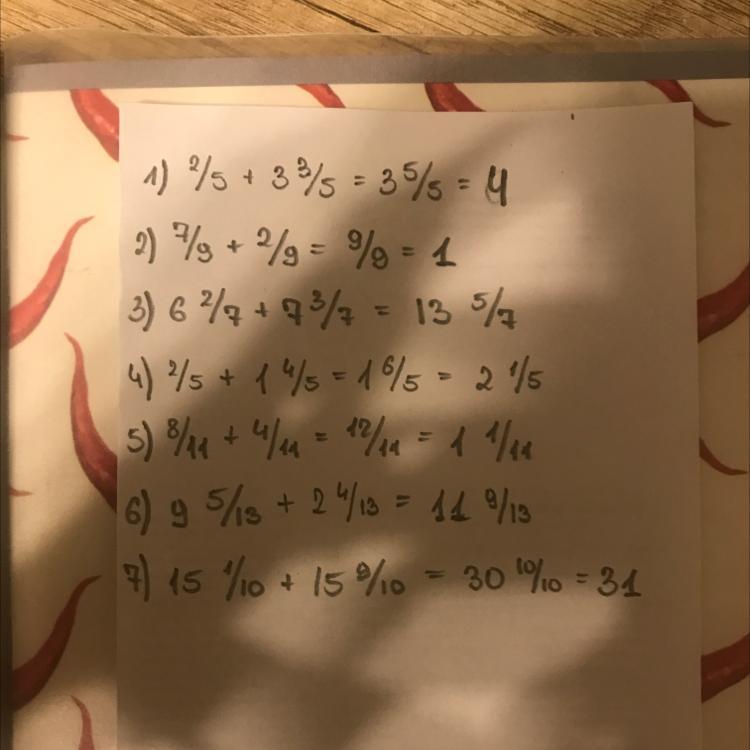 1) 2/5 + 3 3/5 = 3 5/5 = 4
2) 7/9 + 2/9 = 9/9 = 1
3) 6 2/7 + 7 3/7 = 13 5/7
4) 2/5 + 1 4/5 = 1 6/5 = 2 1/5
5) 8/11 + 4/11 = 12/11 = 1 1/11
6) 9 5/13 + 2 4/13 = 11 9/13
7) 15 1/10 + 15 9/10 = 30 10/10 = 31